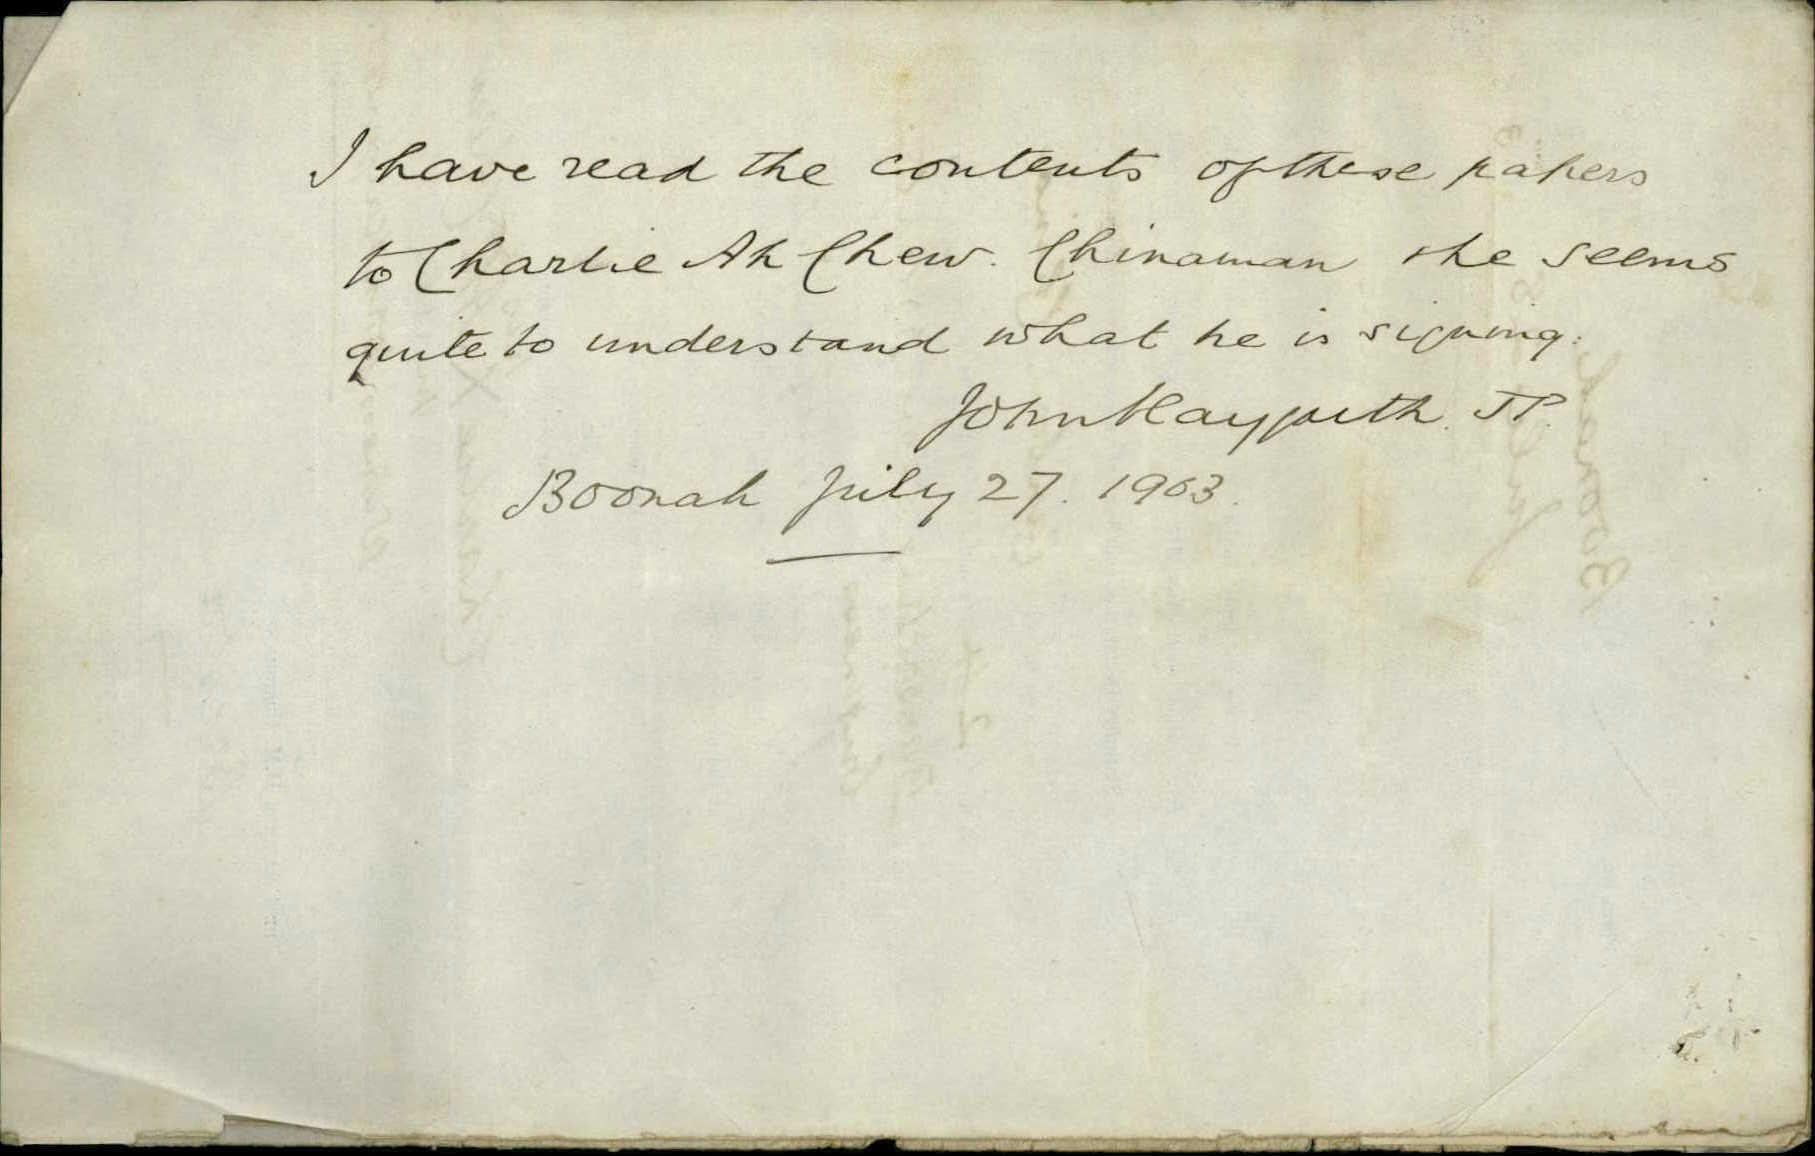 I have read the contents of these papers
to Charlie Ah Chew. Chinaman & he seems
quite to understand what he is signing.
John Hayguth. JP.
Boonah July 27. 1903.